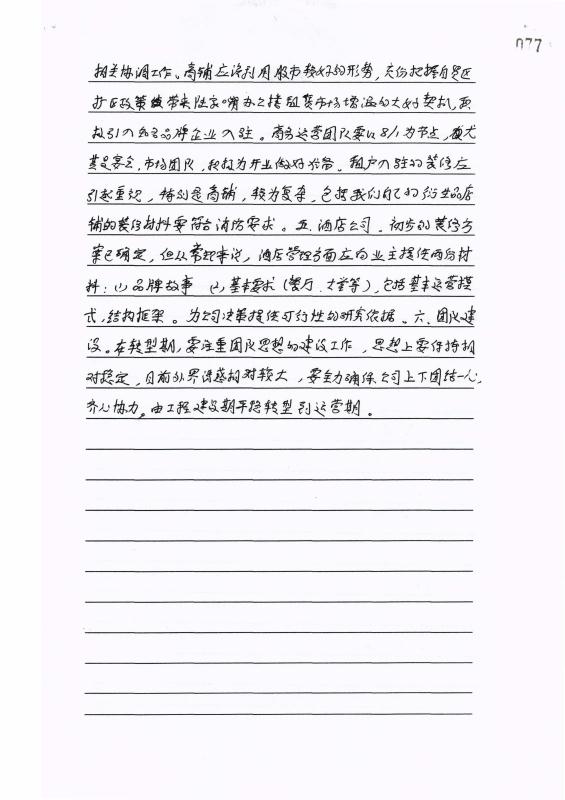 077
相关协调工作、商铺应该利用股市较好的形势，充份把握自贸区
扩区政策带来陆家嘴办公楼租赁市场增温的大好契机，
引入知名品牌企业入驻。商务运营团队要以8/1为节点，尤
其是宴会，市场团队，积极为开业做好准备。租户入驻的装修应
引起重视，特别是商铺，较为复杂，包括我们自己的衍生品店
铺的装修材料要符合消防要求。五、酒店公司。初步的装修方
案已确定，但从常规来说，酒店管理方面应向业主提供两份材
料：(1)品牌故事 (2)基本要求（餐厅、大堂等），包括基本运营模
式，结构框架。为公司决策提供可行性的研究依据。六、团队建
设。在转型期，要注重团队思想的建设工作，思想上要保持相
对稳定，目前外界诱惑相对较大，要全力确保公司上下团结一心，
齐心协力。由工程建设期平稳转型到运营期。